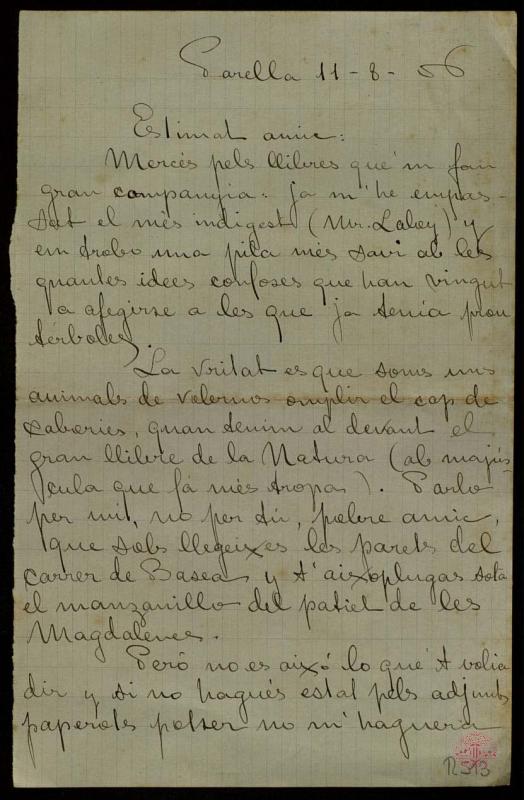 Parella 11-8-06
Estimat amic:
Mercés pels llibres que'm fan
gran companyia: ja m'he empas-
sat el més indigest (Mr. Labey) y
em trobo una pila més savi ab les
quantes idees confoses que han vingut
a afegirse a les que ja tenía prou
térboles.
La vritat es que soms uns
animals de volernos omplir el cap de
cabories, quan tenim al devant el
gran llibre de la Natura (ab majús-
cula que fá més tropa). Parlo
per mí, no per tú, pobre amic,
que sols llegeixes les parets del
carrer de Basea y t'aixoplugas sota
el manzanillo del patiet de les
Magdalenes.
Peró no es aixó lo que't volia
dir y si no hagués estat pels adjunts
paperots potser no m'hagueria
R 513